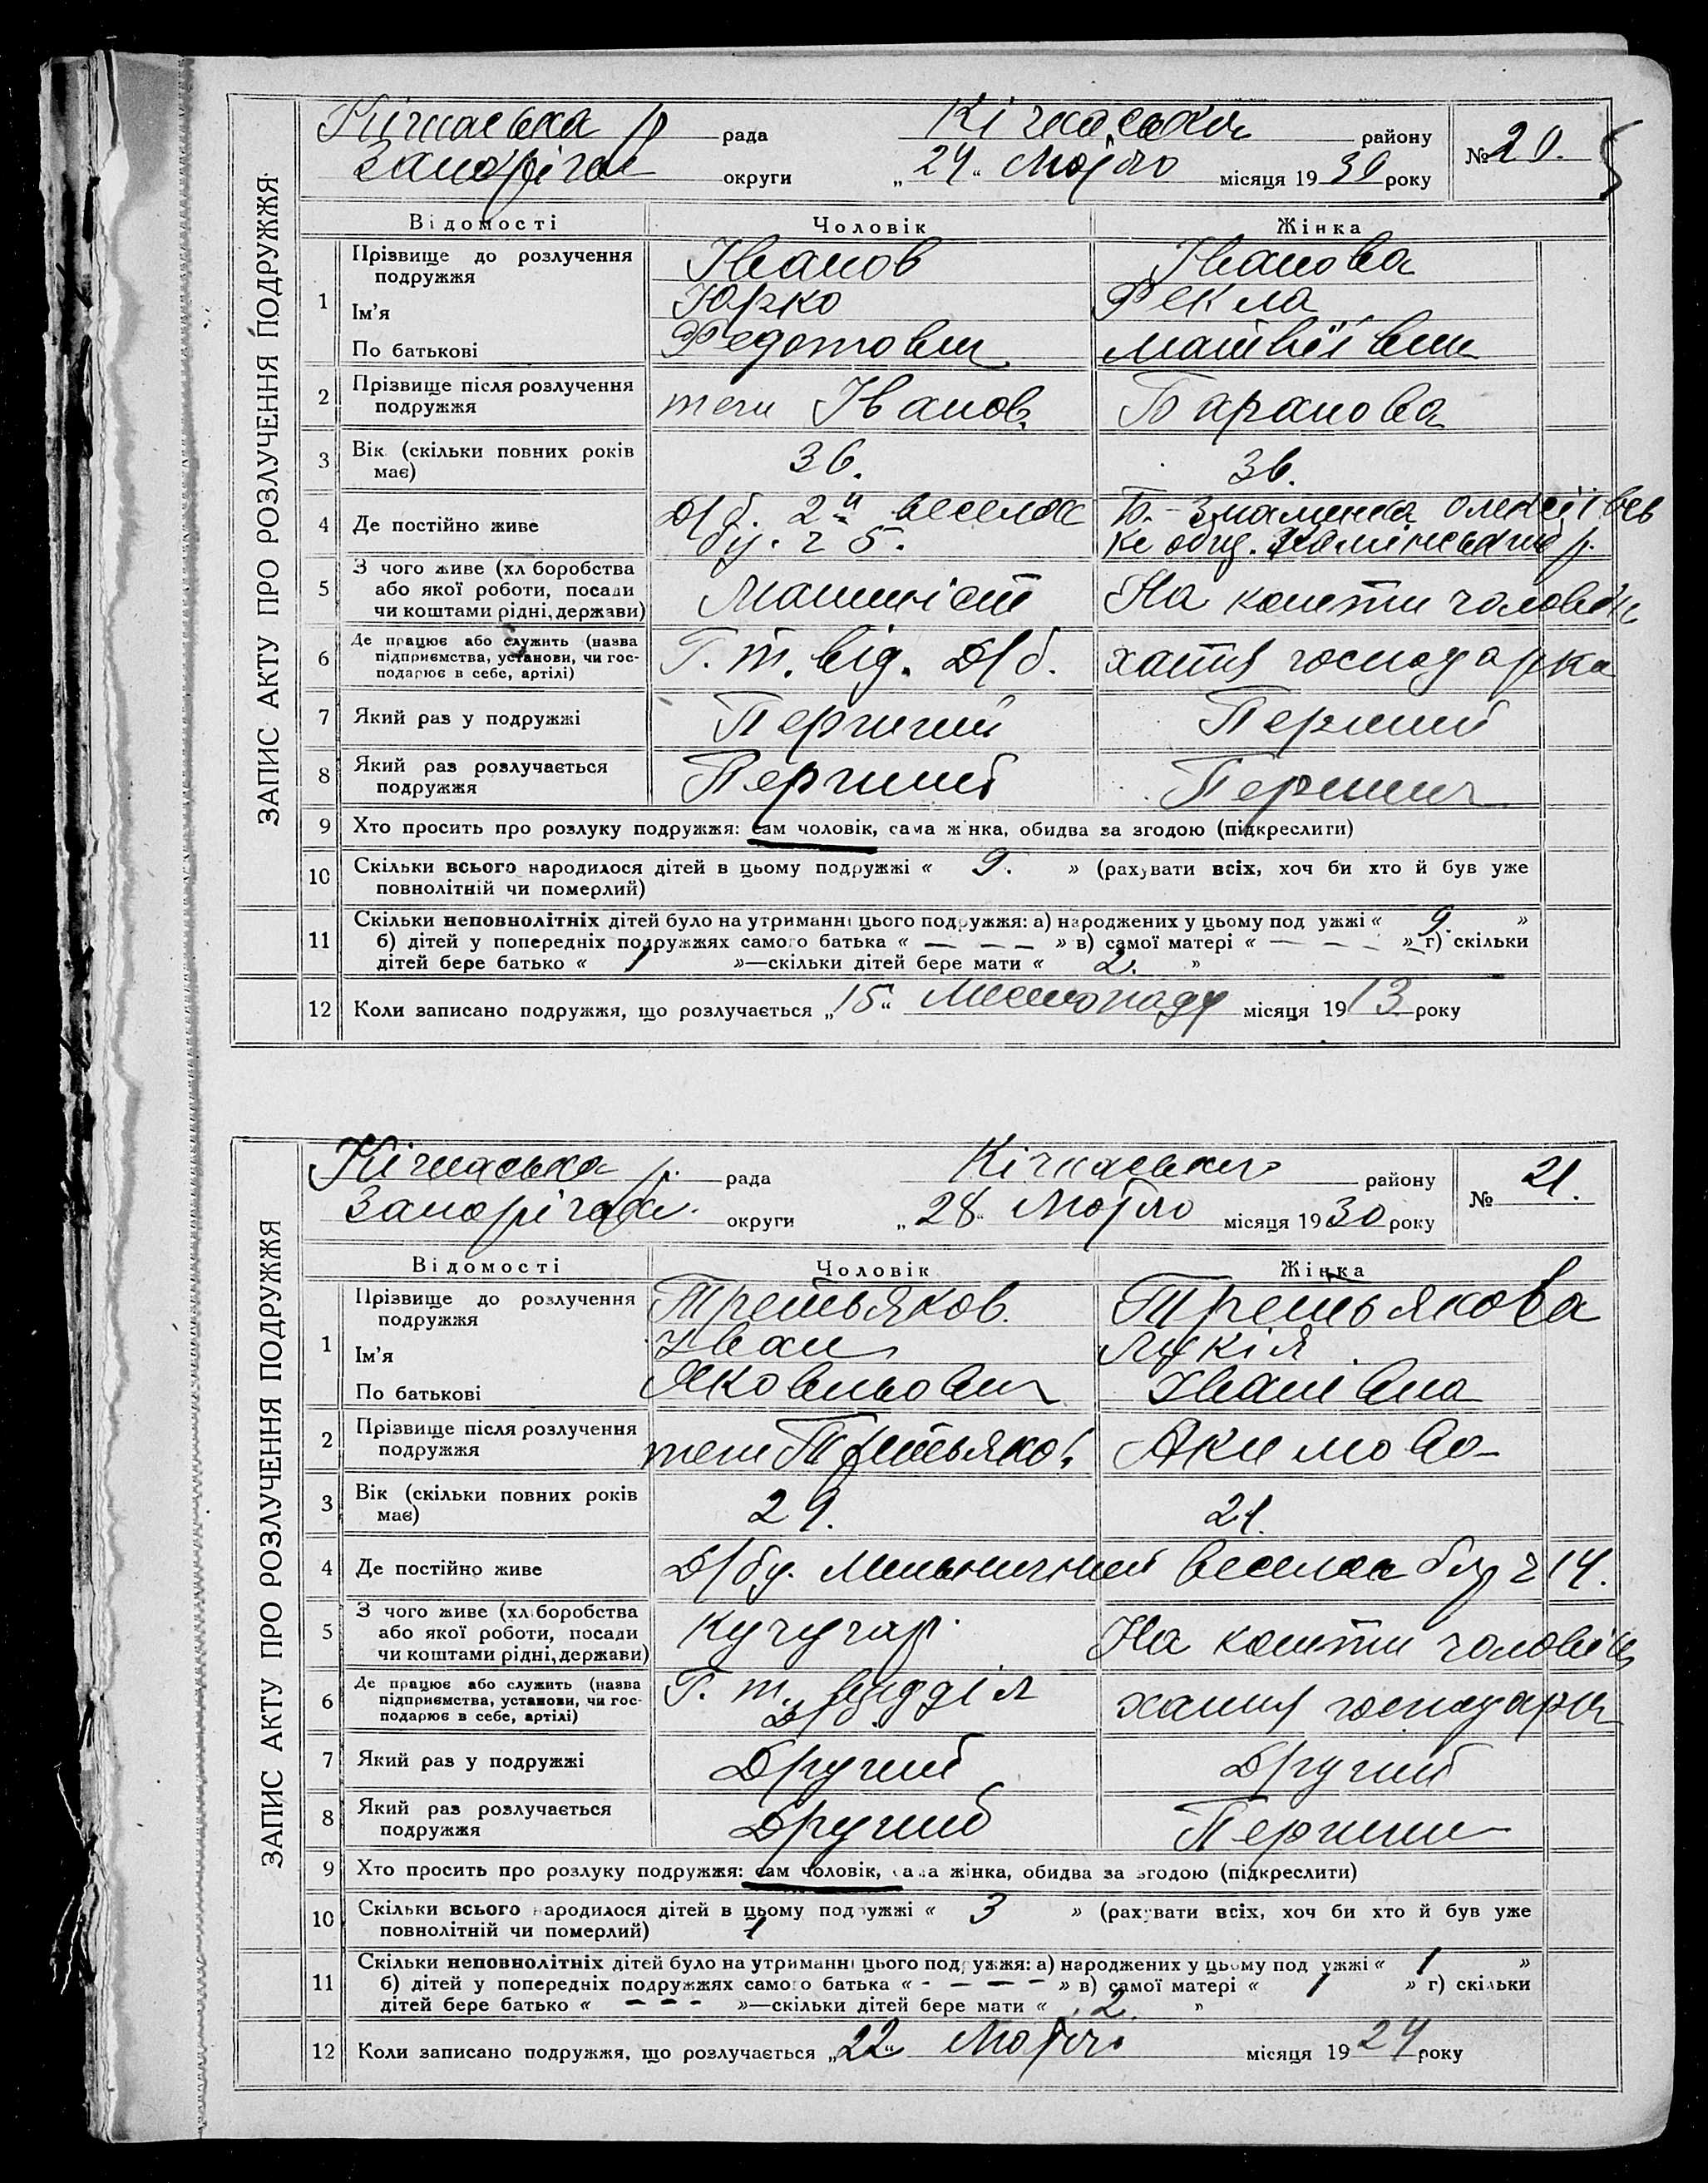 ЗАПИС АКТУ ПРО РОЗЛУЧЕННЯ ПОДРУЖЖЯ
Кічкаська р рада Кічкаського району № 20.
Запоріжж округи „24“ Лютого місяця 1930 року
Відомості Чоловік Жінка
1 Прізвище до розлучення подружжя Іванов Іванова
Ім'я Юрко Фекла
По батькові Федотович Матвіївни
2 Прізвище після розлучення подружжя теж Іванов Баранова
3 Вік (скільки повних років має) 36. 36.
4 Де постійно живе Д/б. 2й веселок Б.-Знаменка
бу. ч 5.
5 З чого живе (хліборобства або якої роботи, посади чи коштами рідні, держави) Машиніст На кошти чоловік
6 Де працює або служить (назва підприємства, установи, чи господарює в себе, артілі) Г. т. від. Д/б. хатня господарка
7 Який раз у подружжі Перший Перший
8 Який раз розлучається подружжя Перший Перший
9 Хто просить про розлуку подружжя: сам чоловік, сама жінка, обидва за згодою (підкреслити)
10 Скільки всього народилося дітей в цьому подружжі « 9. » (рахувати всіх, хоч би хто й був уже
повнолітній чи померлий)
11 Скільки неповнолітніх дітей було на утриманні цього подружжя: а) народжених у цьому подружжі « 9. »
б) дітей у попередніх подружжях самого батька « — — — » в) самої матері « — — — » г) скільки
дітей бере батько « 1 »—скільки дітей бере мати « 2. »
12 Коли записано подружжя, що розлучається „15“ Листопаду місяця 1913 року
ЗАПИС АКТУ ПРО РОЗЛУЧЕННЯ ПОДРУЖЖЯ
Кічкаська р. рада Кічкаського району № 21.
округи „28“ Лютого місяця 1930 року
Відомості Чоловік Жінка
1 Прізвище до розлучення подружжя Третьяков. Третьякова
Ім'я Іван Лукія
По батькові Яковльович Іванівна
2 Прізвище після розлучення подружжя теж Третьяков Акимова
3 Вік (скільки повних років має) 29. 21.
4 Де постійно живе Д/бу. веселок буд ч 14.
5 З чого живе (хліборобства або якої роботи, посади чи коштами рідні, держави) Кучугар. На кошти чоловік
6 Де працює або служить (назва підприємства, установи, чи господарює в себе, артілі) Г. т. відділ хатня господарк
Д/б.
7 Який раз у подружжі Другий Другий
8 Який раз розлучається подружжя Другий Перший
9 Хто просить про розлуку подружжя: сам чоловік, сама жінка, обидва за згодою (підкреслити)
10 Скільки всього народилося дітей в цьому подружжі « 3 » (рахувати всіх, хоч би хто й був уже
повнолітній чи померлий) 1
11 Скільки неповнолітніх дітей було на утриманні цього подружжя: а) народжених у цьому подружжі « 1 »
б) дітей у попередніх подружжях самого батька « - — — — » в) самої матері « 1 » г) скільки
дітей бере батько « — — — »—скільки дітей бере мати « 2 »
12 Коли записано подружжя, що розлучається „22“ Лютого місяця 1924 року